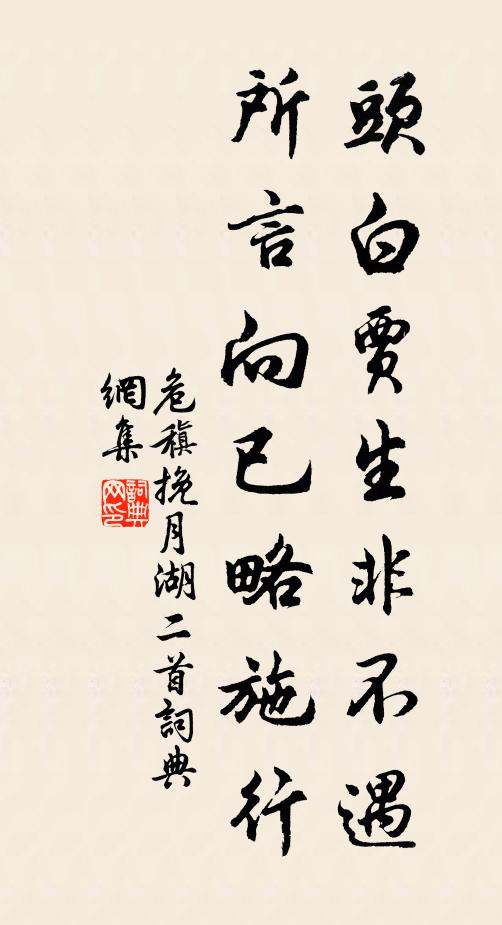 頭白賈生非不遇
所言向已略施行
危稹挽月湖二首詞典
網集
詞典網印